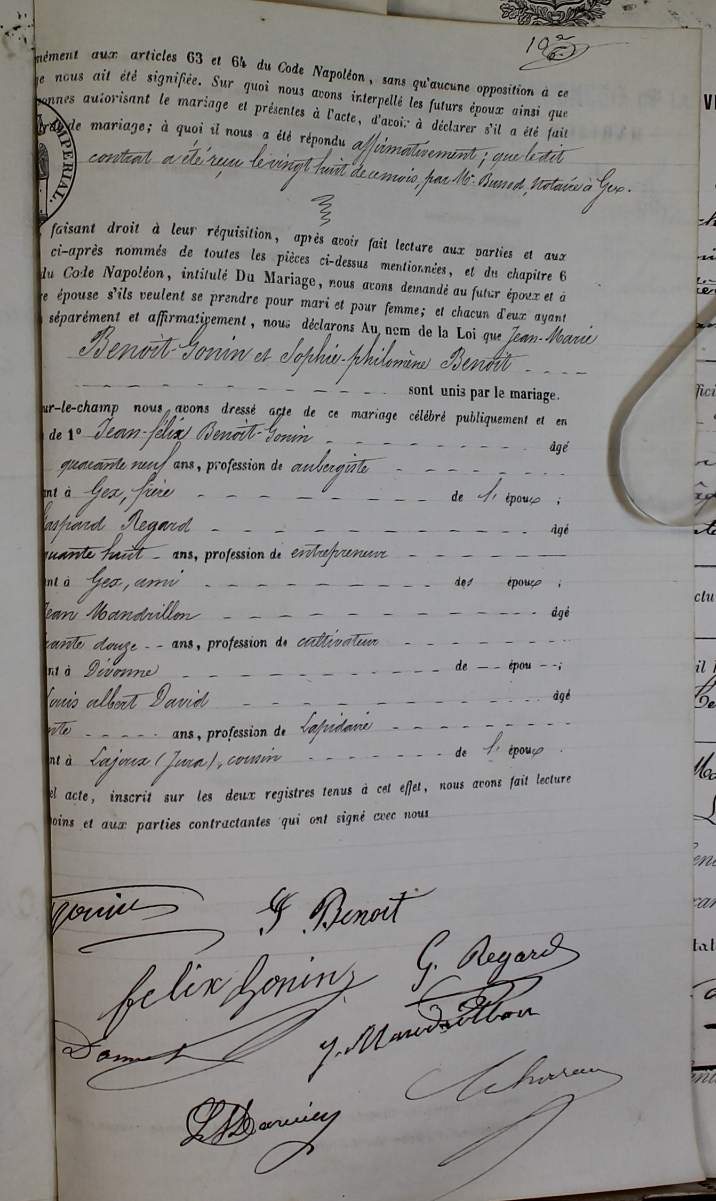 nément aux articles 63 et 64 du Code Napoléon, sans qu'aucune opposition à ce
e nous ait été signifiée. Sur quoi nous avons interpellé les futurs époux ainsi que
onnes autorisant le mariage et présentes à l'acte, d'avoir à déclarer s'il a été fait
de mariage; à quoi il nous a été répondu affirmativement; que le dit
contrat a été reçu le vingt huit de ce mois, par Mr. notaire à Gex.
IMPERIAL.
faisant droit à leur réquisition, après avoir fait lecture aux parties et aux
ci-après nommés de toutes les pièces ci-dessus mentionnées, et du chapitre 6
du Code Napoléon, intitulé Du Mariage, nous avons demandé au futur époux et à
e épouse s'ils veulent se prendre pour mari et pour femme; et chacun d'eux ayant
séparément et affirmativement, nous déclarons Au nom de la Loi que Jean-Marie
Benoit-Gonin et Sophie-philomène Benoit
sont unis par le mariage.
ur-le-champ nous avons dressé acte de ce mariage célébré publiquement et en
de 1° Jean-félix Benoit-Gonin âgé
quarante neuf ans, profession de aubergiste
ant à Gex, frère de l' époux ;
aspard Regard âgé
quante huit ans, profession de entrepreneur
ant à Gex, ami des époux ;
ean Mandrillon âgé
ante douze ans, profession de cultivateur
nt à Divonne de épou ;
Louis albert David âgé
nte ans, profession de Lapidaire
nt à Lajoux (Jura), cousin de l' époux .
el acte, inscrit sur les deux registres tenus à cet effet, nous avons fait lecture
oins et aux parties contractantes qui ont signé avec nous
Gonin
Benoit
felix Gonin
G. Regard
J. Mandrillon